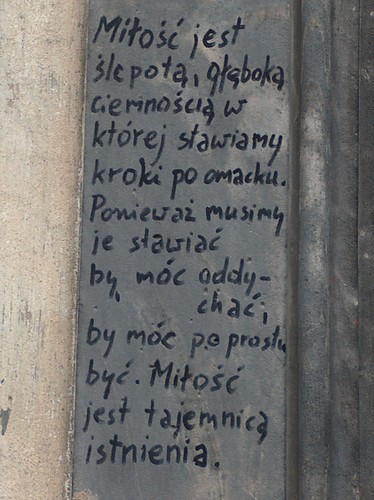 Miłość jest
ślepotą, głęboką
ciemnością w
której stawiamy
kroki po omacku.
Ponieważ musimy
je stawiać
by móc oddy-
chać,
by móc po prostu
być. Miłość
jest tajemnicą
istnienia.